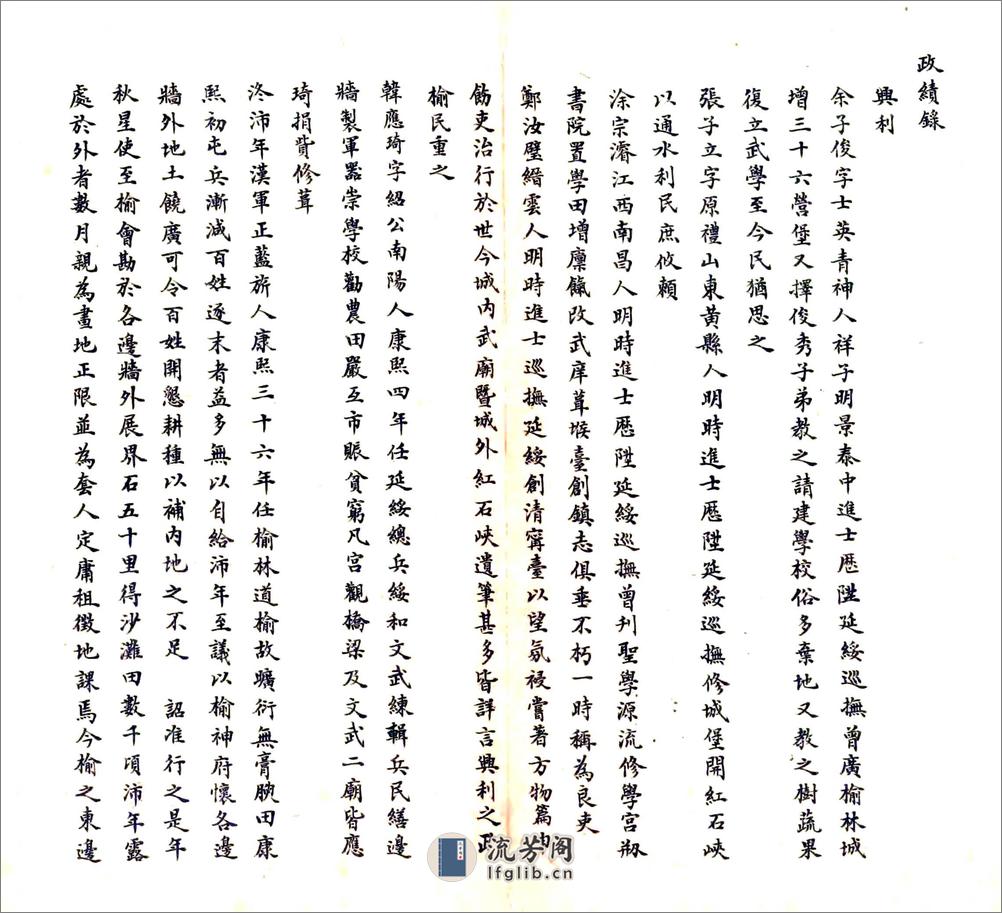 政績錄
興利
余子俊字士英青神人祥子明景泰中進士歷陞延綏巡撫曾廣榆林城
增三十六營堡又擇俊秀子弟教之請建學校俗多棄地又教之樹蔬果
復立武學至今民猶思之
張子立字原禮山東黃縣人明時進士歷陞延綏巡撫修城堡開紅石峽
以通水利民庶攸賴
涂宗濬江西南昌人明時進士歷陞延綏巡撫曾刋聖學源流修學宮剏
書院置學田增廩餼改武庠葺堠臺創鎮志俱垂不朽一時稱為良吏
鄭汝璧縉雲人明時進士巡撫延綏創清寧臺以望氛祲嘗著方物篇
飭吏治行於世今城內武廟暨城外紅石峽遺筆甚多皆詳言興利之政
榆民重之
韓應琦字紹公南陽人康熙四年任延綏總兵綏和文武練輯兵民繕邊
牆製軍器崇學校勸農田嚴互市賑貧窮凡宮觀橋梁及文武二廟皆應
琦捐貲修葺
佟沛年漢軍正藍旂人康熙三十六年任榆林道榆故曠衍無膏腴田康
熙初屯兵漸減百姓逐末者益多無以自給沛年至議以榆神府懷各邊
牆外地土饒廣可令百姓開懇耕種以補內地之不足 詔准行之是年
秋星使至榆會勘於各邊牆外展界石五十里得沙灘田數千頃沛年露
處於外者數月親為畫地正限並為套人定庸租徵地課焉今榆之東邊
流芳阁
lfglib.cn